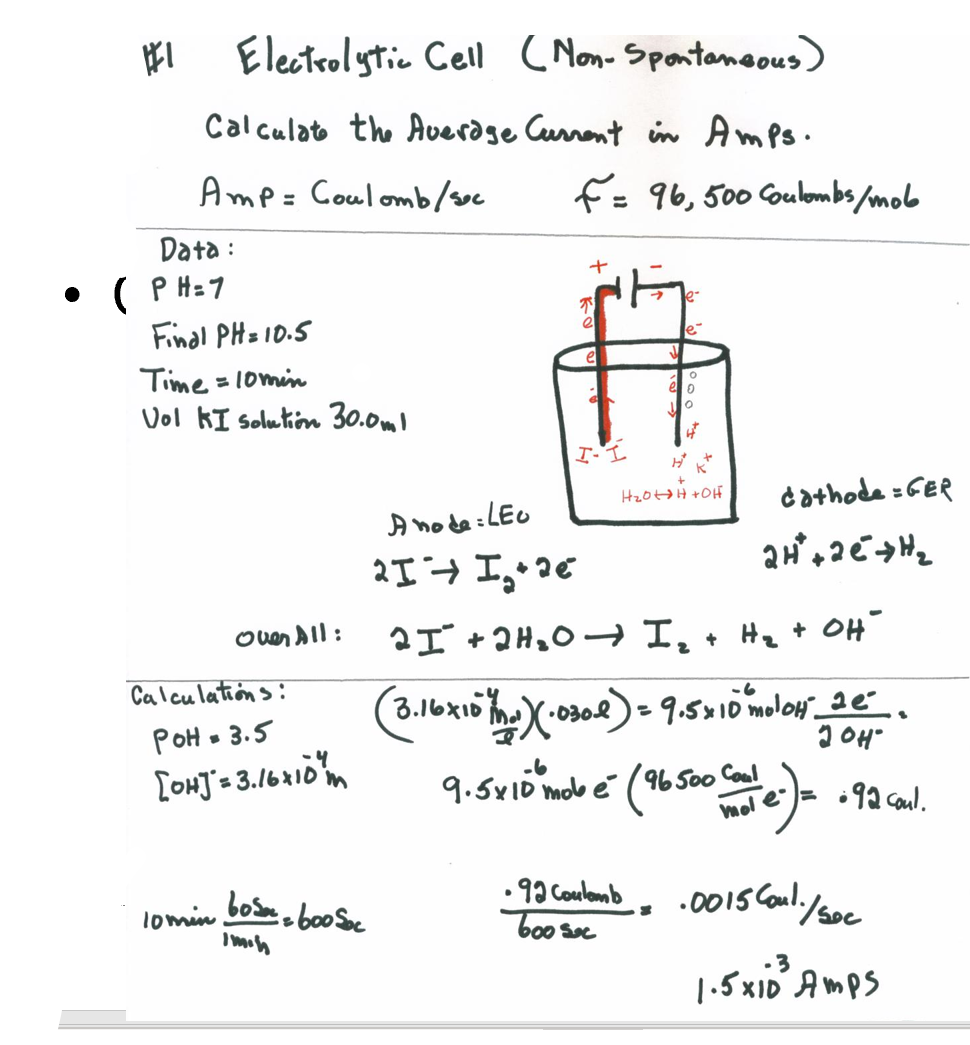 #1 Electrolytic Cell (Non-Spontaneous)
Calculate the Average Current in Amps.
Amp = Coulomb/sec F = 96,500 Coulombs/mole
Data:
• ( PH=7
Final PH=10.5
Time = 10min
Vol KI solution 30.0ml
+ -
e-
e-
e
e
e-
e-
o
o
o
H+
I- I-
H+ K+
H2O↔H+ +OH-
Anode=LEO
Cathode=GER
2I- → I2+2e-
2H+ + 2e- → H2
OverAll: 2I- + 2H2O → I2 + H2 + OH-
Calculations:
(3.16x10-4 mol/l)(.030l) = 9.5x10-6 mol OH- 2e-/2OH- =
POH = 3.5
[OH]-=3.16x10-4m
9.5x10-6 mole e- (96500 Coul/mol e-) = .92 Coul.
10min 60Sec/1min = 600Sec
.92 Coulomb/600 Sec = .0015 Coul./sec
1.5x10-3 Amps